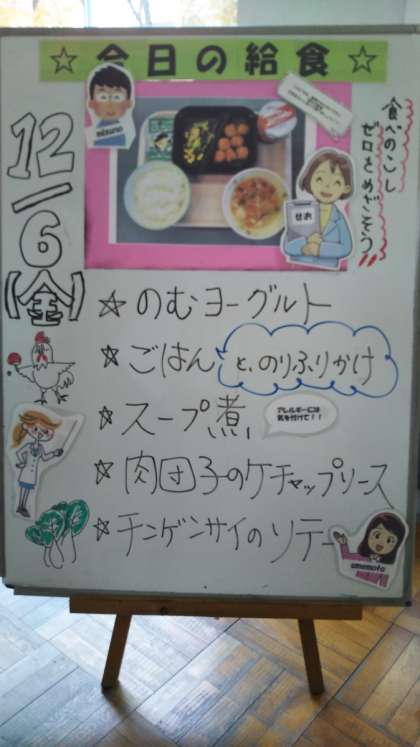 ☆ 今日の給食 ☆
食べのこし
ゼロをめざそう!!
mizuno
せお
12/6(金)
☆ のむヨーグルト
☆ ごはんと、のりふりかけ
☆ スープ煮
アレルギーには
気を付けて!!
☆ 肉団子のケチャップソース
☆ チンゲンサイのソテー
umemoto